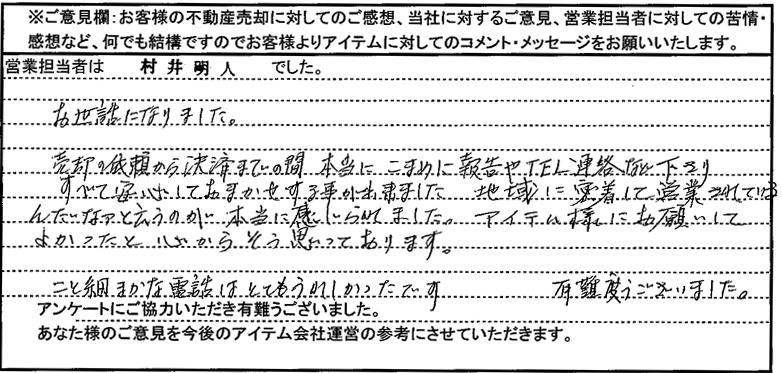 ※ご意見欄：お客様の不動産売却に対してのご感想、当社に対するご意見、営業担当者に対しての苦情・
感想など、何でも結構ですのでお客様よりアイテムに対してのコメント・メッセージをお願いいたします。
営業担当者は 村井明人 でした。
お世話になりました。
売却の依頼から決済までの間 本当に こまめに報告やTEL連絡など下さり
すべて安心しておまかせする事が出来ました 地域に密着して営業されている
んだなっと言うのが本当に感じられました。 アイテム様にお願いして
よかったと 心からそう思っております。
こと細まかな電話はとてもうれしかったです 有難度うございました。
アンケートにご協力いただき有難うございました。
あなた様のご意見を今後のアイテム会社運営の参考にさせていただきます。